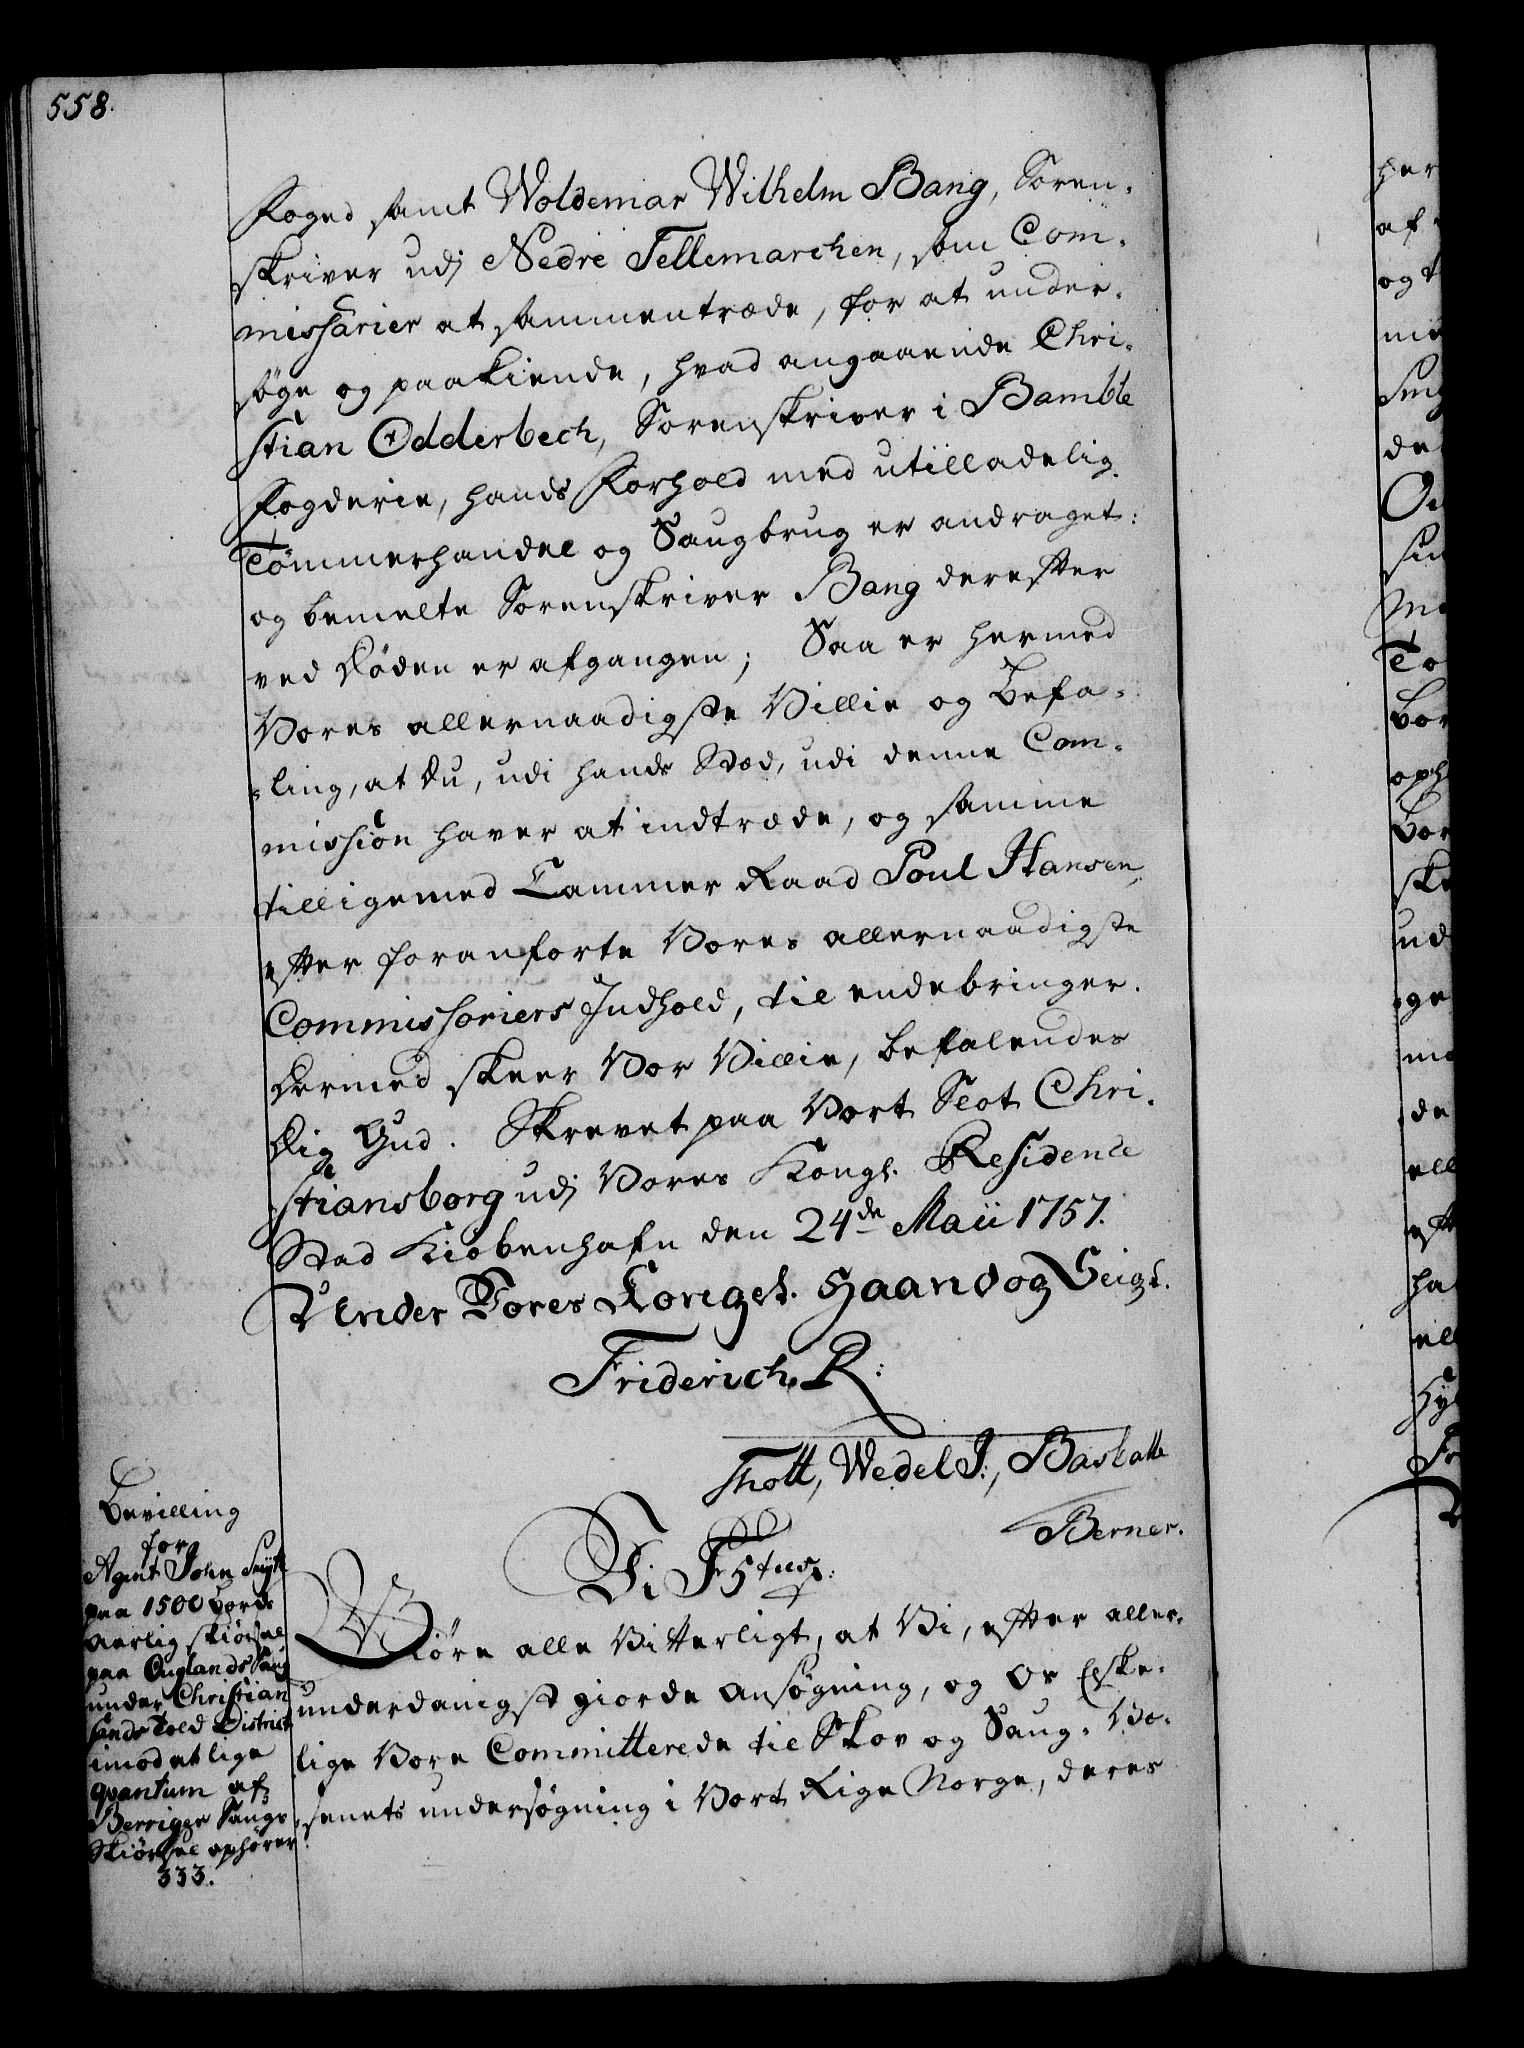 558.
Foged samt Woldemar Wilhelm Bang, Soren-
skriver udj Nedre Tellemarchen, som Com-
missarier at sammentræde, for at under-
søge og paakiende, hvad angaaende Chri-
stian Odderbech, Sorenskriver i Bamble
Fogderie, hands Forhold med utilladelig
Tømmerhandel og Saugbrug er andraget:
og bemelte Sorenskriver Bang derefter
ved Døden er afgangen; Saa er hermed
Vores allernaadigste Villie og Befa-
-ling, at Du, udi hands Stæd, udi denne Com-
mission haver at indtræde, og samme
tilligemed Cammer Raad Poul Hansen,
efter foranforte Vores allernaadigste
Commissoriers Indhold, til endebringer.
Dermed skeer Vor Villie, befalendes
Dig Gud. Skrevet paa Vort Slot Chri-
stiansborg udj Vores Kongl. Residence
Stad Kiøbenhafn den 24de Maii 1757.
Under Vores Kongel. Haand og Seigl.
Friderich R:
Thott, Wedel J:, Barkalle
Berner.
Bevilling
for
Agent John Smith
paa 1500 Bords
Aarlig skiørsel
paa Englands Saug
under Christian
sands Told District
imod at lige
qvantum af
Berriger Saugs
Skiørsel ophører
333.
Vi F 5tus:
Giøre alle Vitterligt, at Vi, efter aller-
underdanigst giorde Ansøgning, og Os Elske-
lige Vore Committerede til Skov og Saug-Væ-
senets undersøgning i Vort Rige Norge, deres